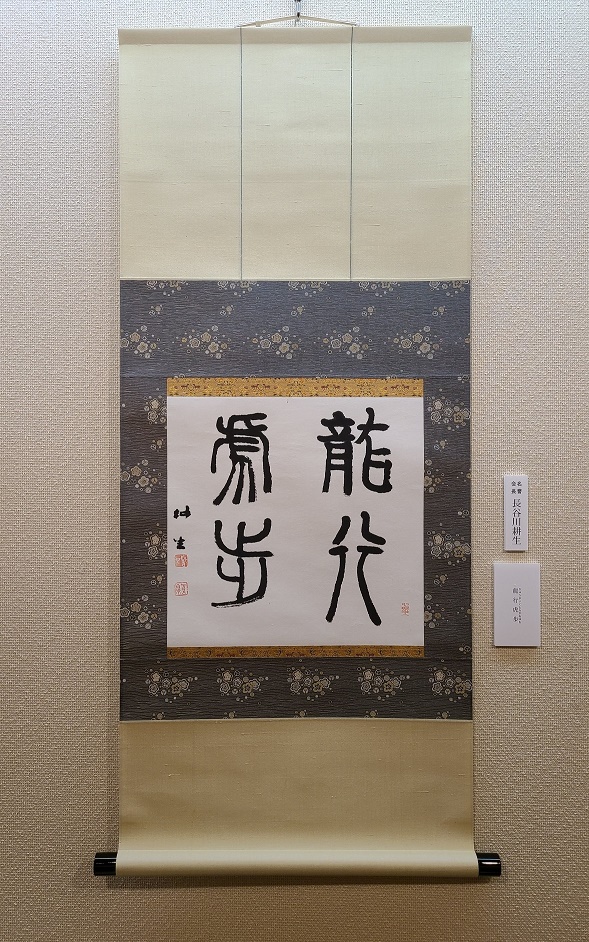 龍行
虎步
耕生
名誉会長 長谷川耕生
龍行虎步